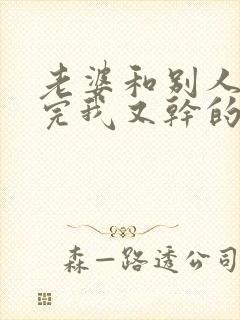 老婆和别人
完我又幹的
森一路透公司